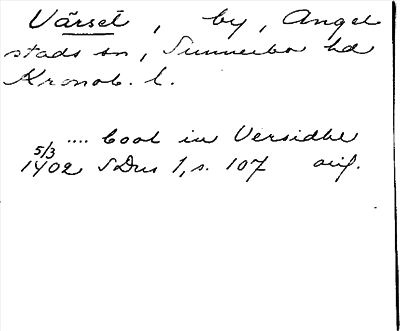 Värset, by, Angel
stads sn, Sunnerbo hd
Kronob. l.
.... boot in Versidhe
5/3 1402 SDns 1, s. 107 avg.